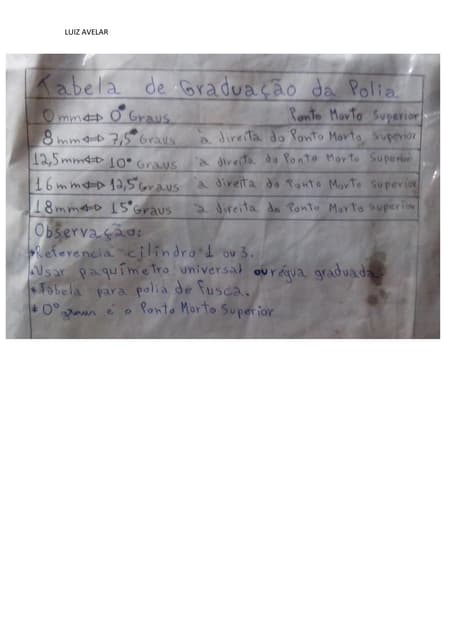 LUIZ AVELAR
Tabela de Graduação da Polia
0mm⇔ 0° Graus Ponto Morto Superior
8mm⇔ 7,5° Graus à direita do Ponto Morto Superior
12,5mm⇔ 10° Graus à direita do Ponto Morto Superior
16mm⇔ 12,5° Graus à direita do Ponto Morto Superior
18mm⇔ 15° Graus à direita do Ponto Morto Superior
Observação:
*Referencia cilindro 1 ou 3.
*Usar paquímetro universal ou régua graduada
*Tabela para polia de Fusca.
*0° graus e o Ponto Morto Superior